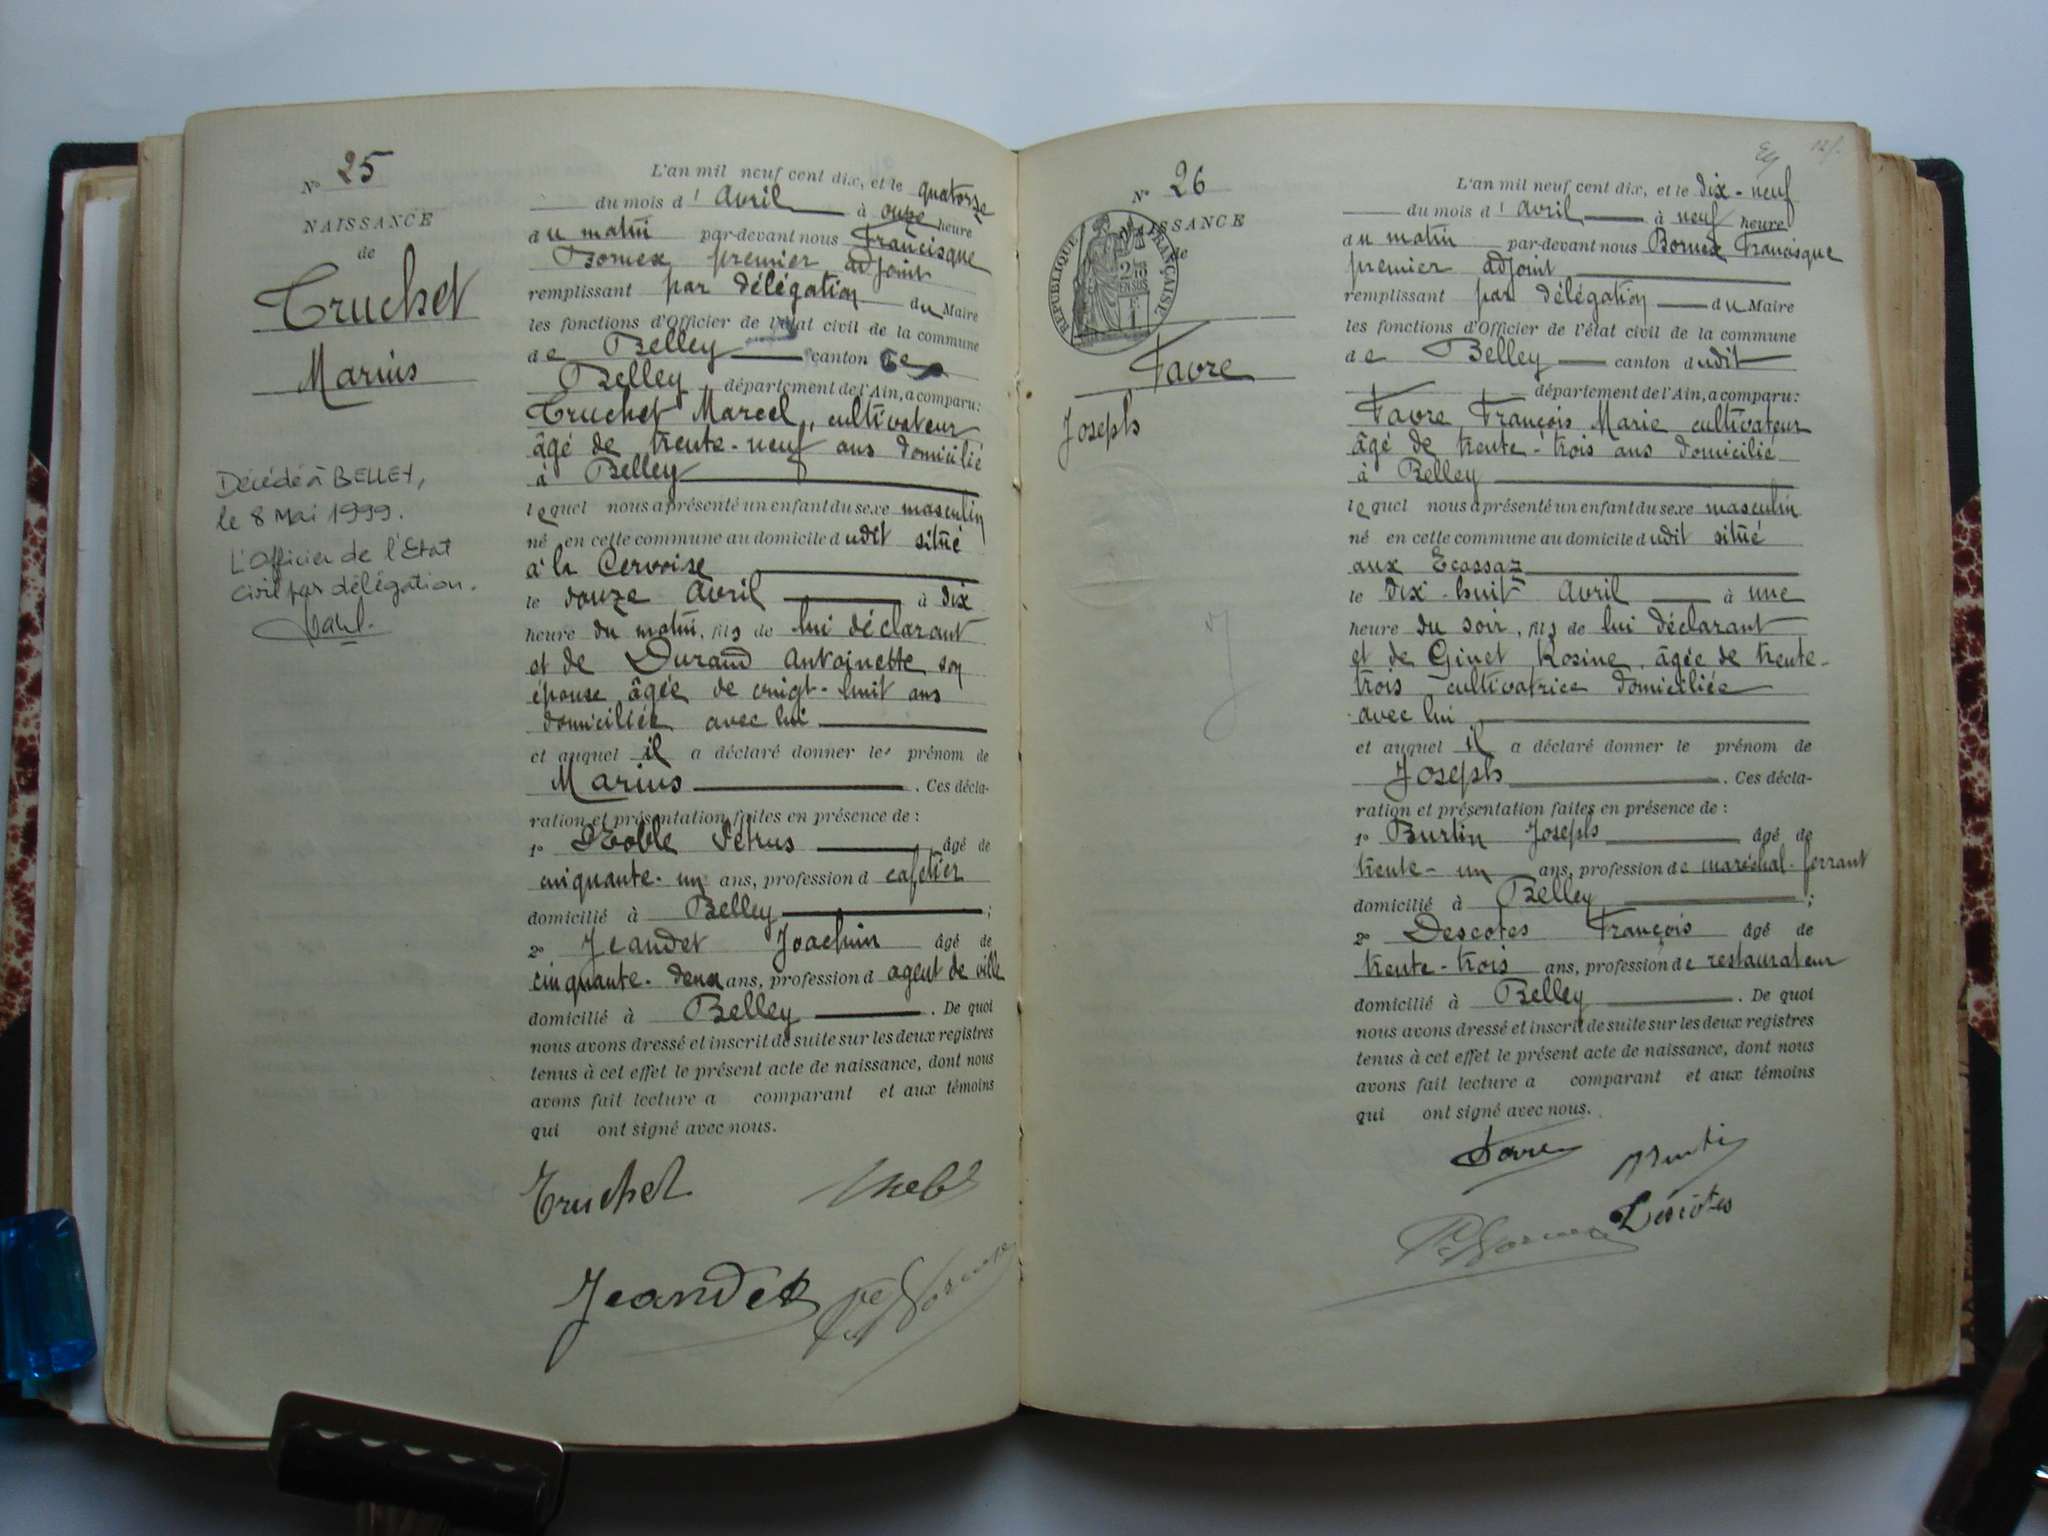 N° 25
NAISSANCE
de
Truchet
Marius
Décédé à BELLEY,
le 8 Mai 1999.
L'Officier de l'Etat
Civil par délégation.
L'an mil neuf cent dix, et le quatorze
du mois d'Avril à onze heure
du matin par-devant nous Francisque
Bornex premier adjoint
remplissant par délégation du Maire
les fonctions d'Officier de l'état civil de la commune
de Belley canton de
Belley département de l'Ain, a comparu:
Truchet Marcel, cultivateur
âgé de trente-neuf ans domicilié
à Belley
lequel nous a présenté un enfant du sexe masculin
né en cette commune au domicile dudit situé
à la Cervoise
le douze Avril à dix
heure du matin, fils de lui déclarant
et de Durand Antoinette son
épouse âgée de vingt-huit ans
domiciliée avec lui
et auquel il a déclaré donner les prénom de
Marius . Ces décla-
ration et présentation faites en présence de :
1° Noble Pétrus âgé de
cinquante-un ans, profession d cafetier
domicilié à Belley ;
2° Jeandet Joachim âgé de
cinquante-deux ans, profession d agent de ville
domicilié à Belley . De quoi
nous avons dressé et inscrit de suite sur les deux registres
tenus à cet effet le présent acte de naissance, dont nous
avons fait lecture a comparant et aux témoins
qui ont signé avec nous.
Truchet
Jeandet
N° 26
NAISSANCE
de
RÉPUBLIQUE FRANÇAISE
2/10
EN SUS
Favre
Joseph
L'an mil neuf cent dix, et le dix-neuf
du mois d'Avril à neuf heure
du matin par-devant nous Bornex Francisque
premier adjoint
remplissant par délégation du Maire
les fonctions d'Officier de l'état civil de la commune
de Belley canton dudit
département de l'Ain, a comparu:
Favre François Marie cultivateur
âgé de trente-trois ans domicilié
à Belley
lequel nous a présenté un enfant du sexe masculin
né en cette commune au domicile dudit situé
aux Ecassaz
le dix-huit Avril à une
heure du soir, fils de lui déclarant
et de Ginet Rosine, âgée de trente-
trois cultivatrice domiciliée
avec lui
et auquel il a déclaré donner le prénom de
Joseph . Ces décla-
ration et présentation faites en présence de :
1° Burtin Joseph âgé de
trente-un ans, profession de maréchal-ferrant
domicilié à Belley ;
2° Descotes François âgé de
trente-trois ans, profession de restaurateur
domicilié à Belley . De quoi
nous avons dressé et inscrit de suite sur les deux registres
tenus à cet effet le présent acte de naissance, dont nous
avons fait lecture a comparant et aux témoins
qui ont signé avec nous.
Favre